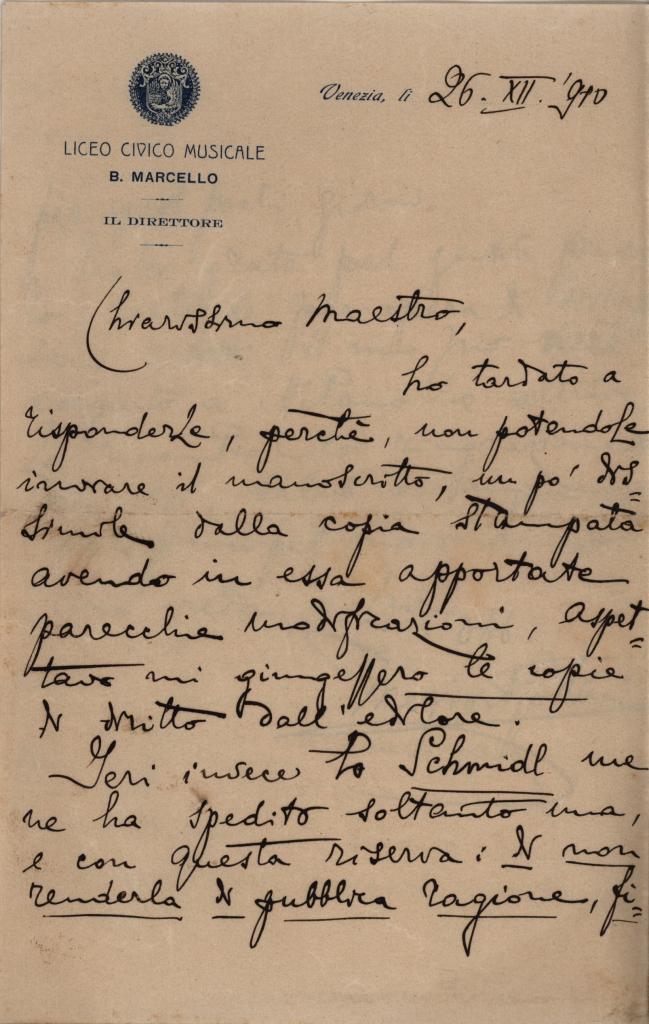 Venezia, li 26. XII. '910
LICEO CIVICO MUSICALE
B. MARCELLO
IL DIRETTORE
Chiarissimo Maestro,
ho tardato a
risponderLe, perchè, non potendoLe
inviare il manoscritto, un po' dis=
simile dalla copia stampata
avendo in essa apportate
parecchie modificazioni, aspet=
tavo mi giungessero le copie
di diritto dall'editore.
Jeri invece lo Schmidl me
ne ha spedito soltanto una,
e con questa riserva: di non
renderla di pubblica ragione, fi=